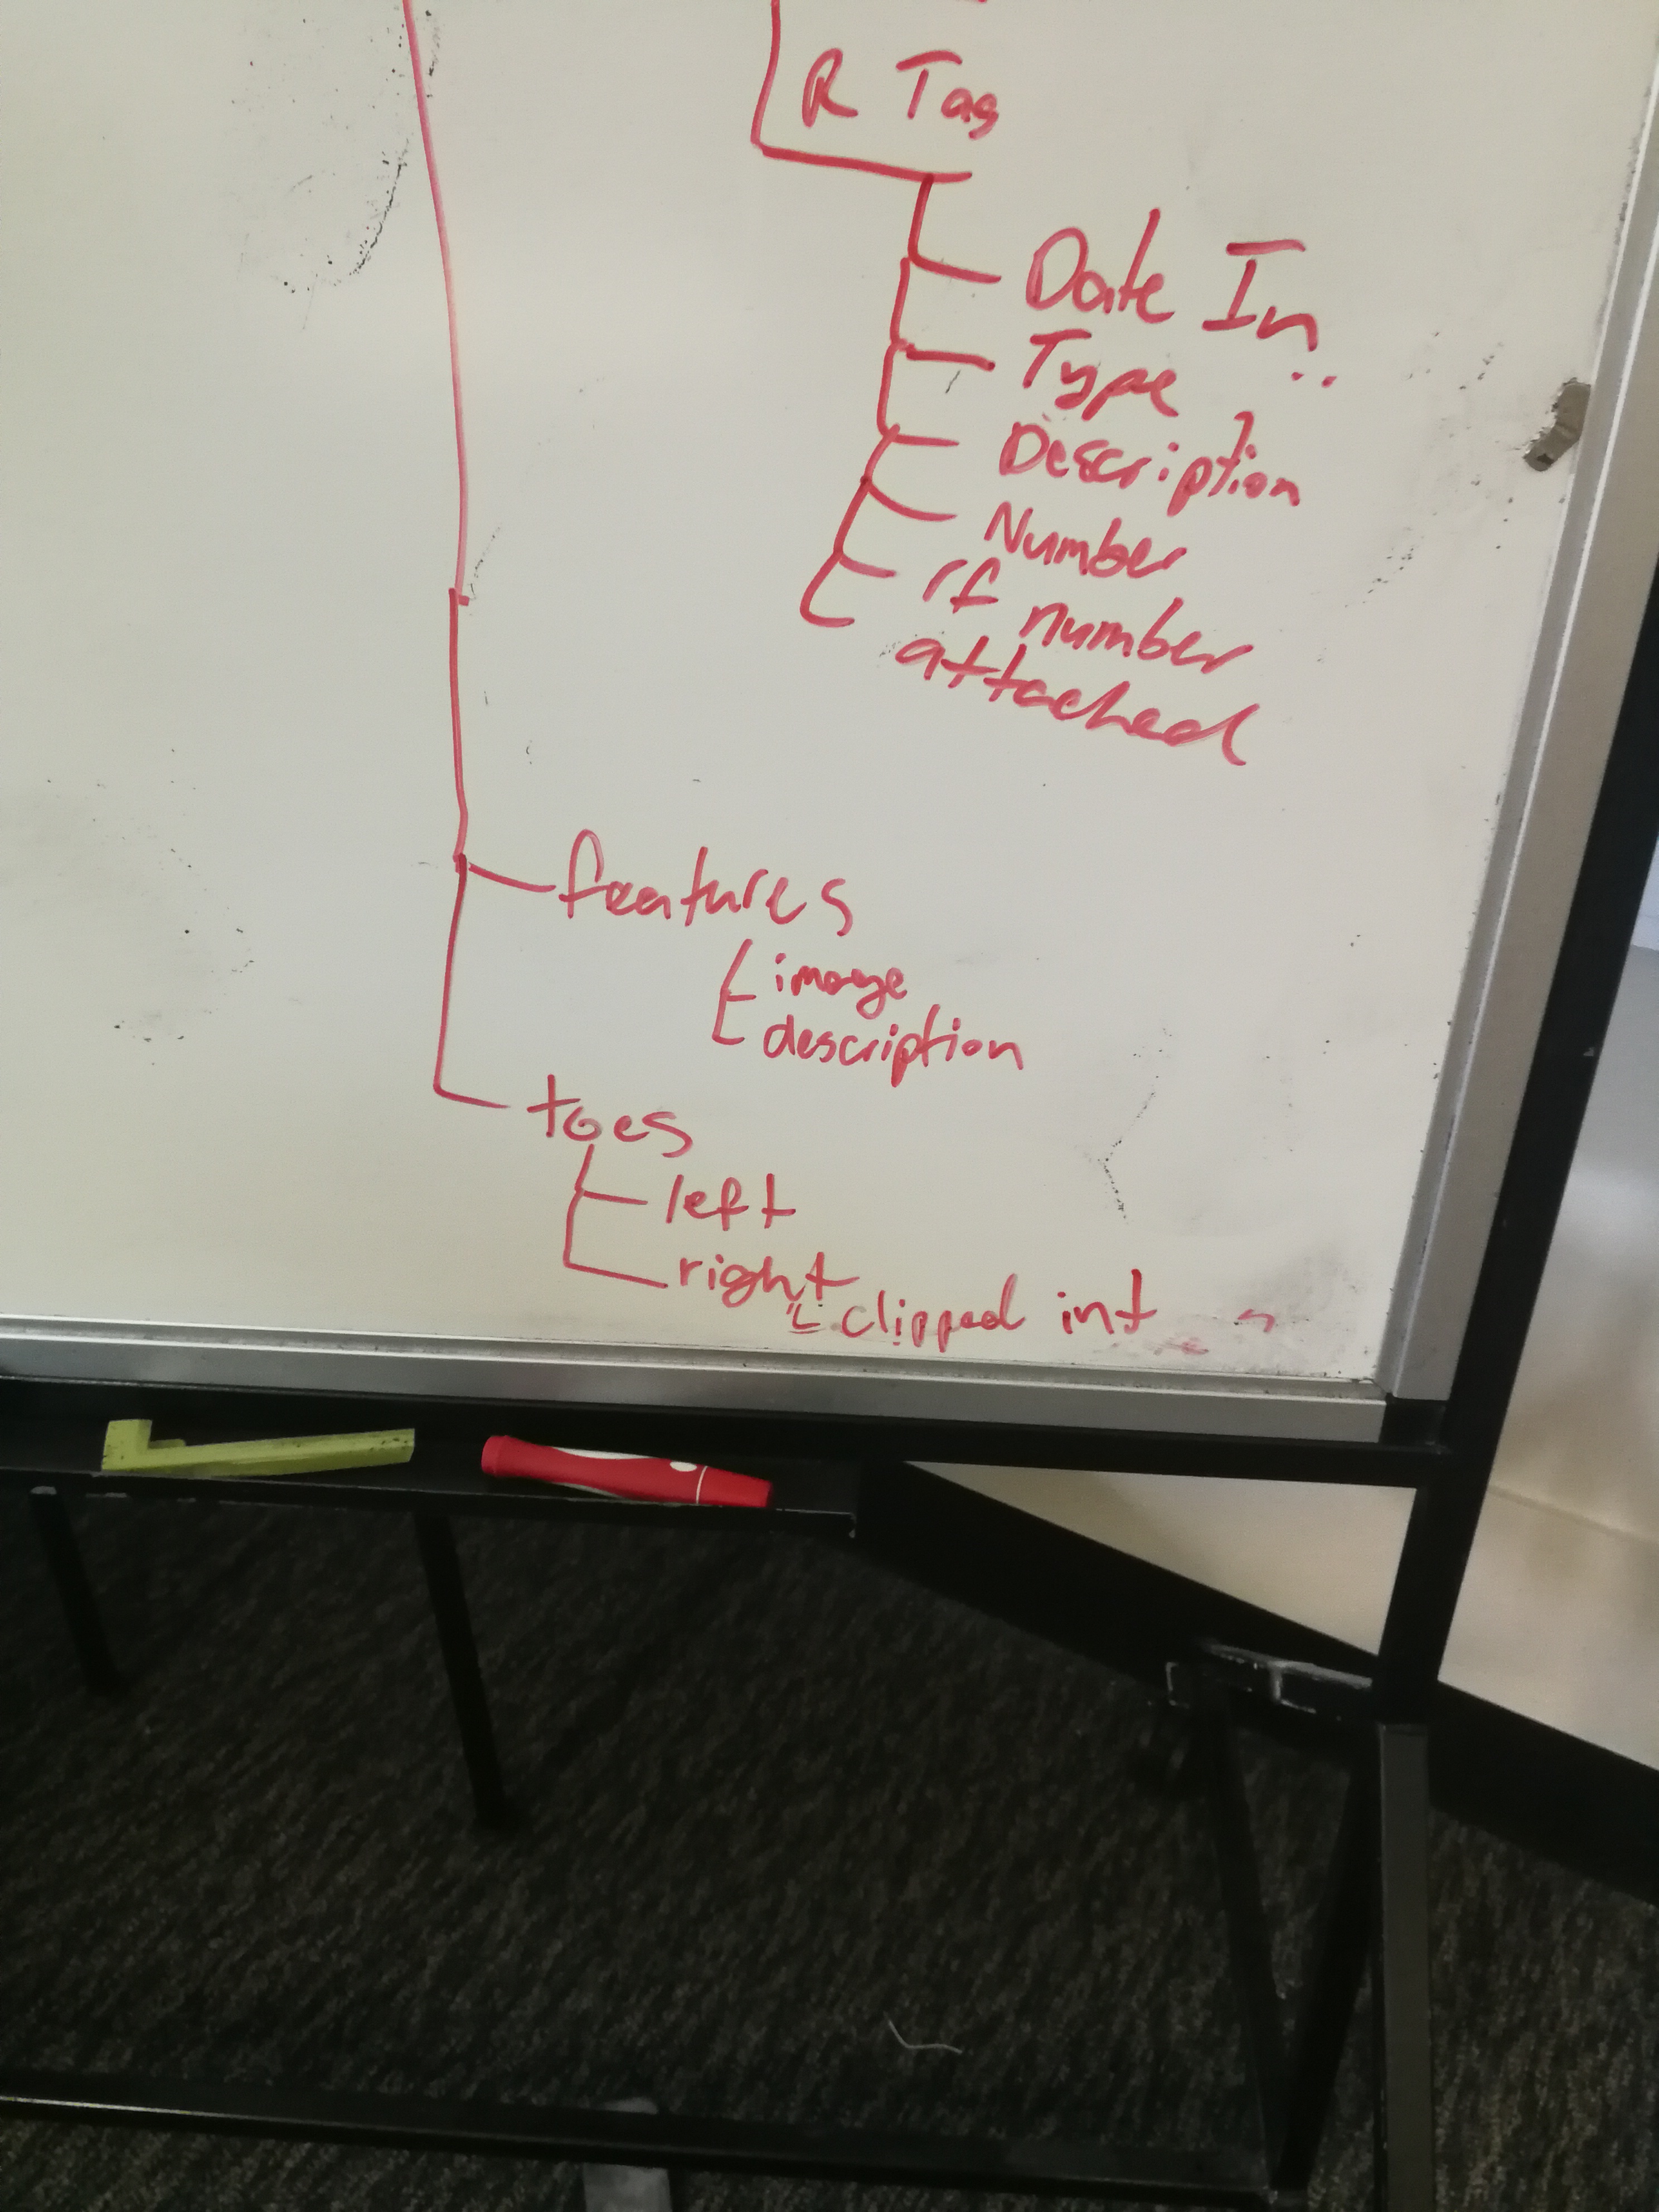 R Tag
Date In
Type
Description
Number
rf number
attached
features
image
description
toes
left
right
clipped int